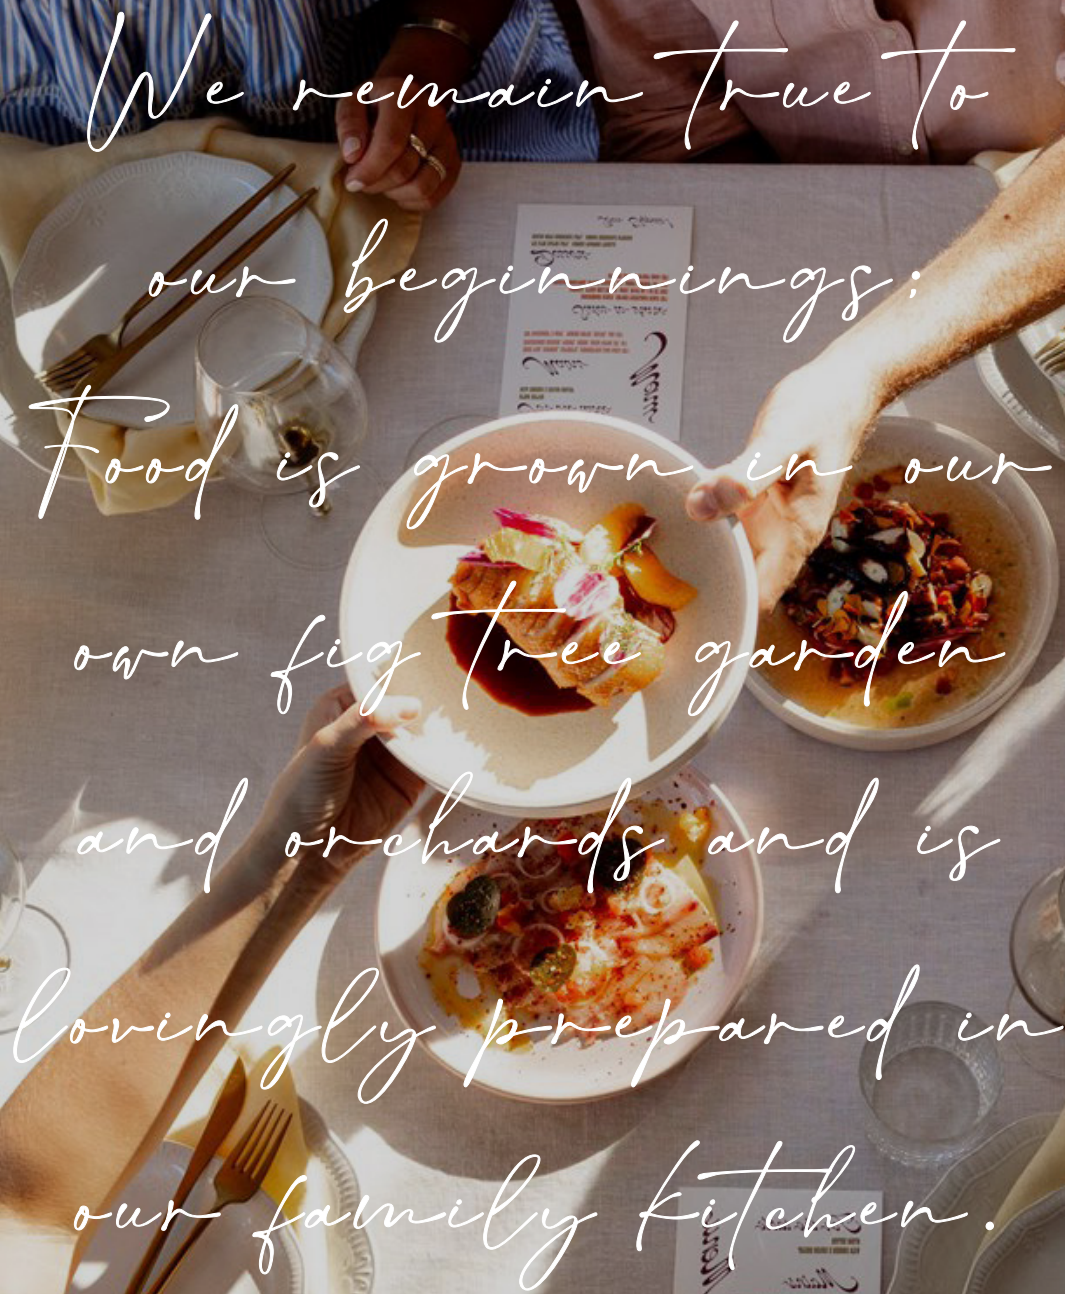 We remain true to
our beginnings;
Food is grown in our
own fig tree garden
and orchards and is
lovingly prepared in
our family kitchen.